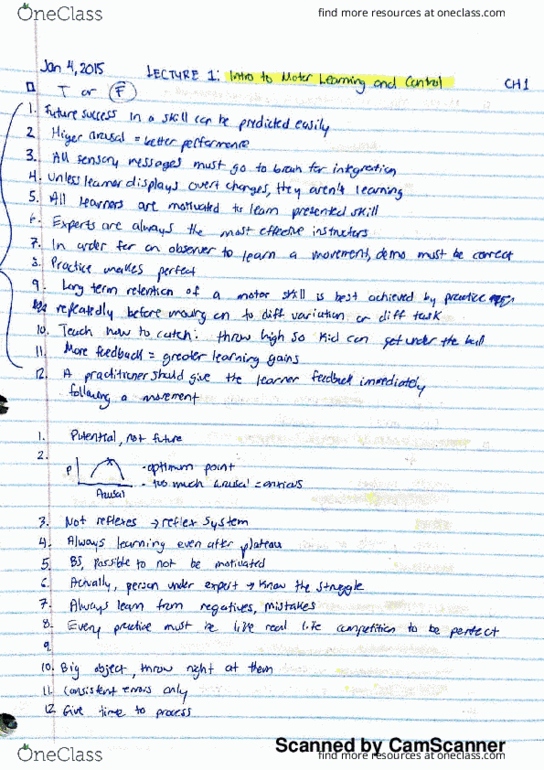 OneClass
find more resources at oneclass.com
Jan 4, 2015 LECTURE 1: Intro to Motor Learning and Control CH1
T or F
1. Future success in a skill can be predicted easily
2. Higer arusal = better performance
3. All sensory messages must go to brain for integration
4. Unless learner displays overt changes, they aren't learning
5. All learners are motivated to learn presented skill
6. Experts are always the most effective instructers
7. In order for an observer to learn a movement, demo must be correct
8. Practice makes perfect
9. Long term retention of a motor skill is best achieved by practice
repeatedly before moving on to diff variation or diff task
10. Teach how to catch: throw high so kid can get under the ball
11. More feedback = greater learning gains
12. A practitioner should give the learner feedback immediately
following a movement
1. Potential, not future
2.
P
- optimum point
- too much arusal = anxious
Arusal
3. Not reflexes → reflex system
4. Always learning even after plateau
5. BS, possible to not be motivated
6. Actually, person under expert → know the struggle
7. Always learn from negatives, mistakes
8. Every practice must be like real life competition to be perfect
9.
10. Big object, throw right at them
11. Consistent errors only
12. Give time to process
Scanned by CamScanner
OneClass
find more resources at oneclass.com